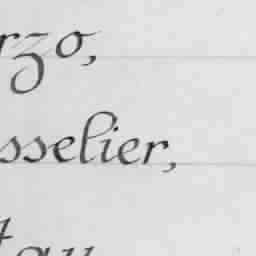 rzo,
sselier,